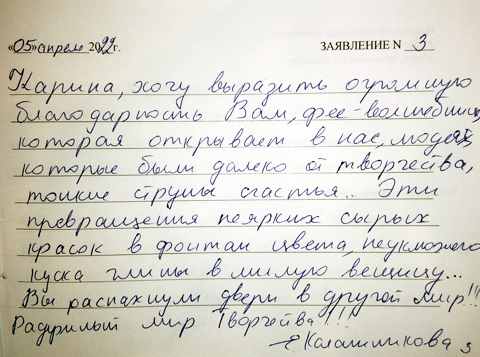 «05» апреля 2022г. ЗАЯВЛЕНИЕ N 3
Карина, хочу выразить огромную
благодарность Вам, фее-волшебнице,
которая открывает в нас, людях,
которые были далеко от творчества,
тонкие струны счастья... Эти
превращения неярких сырых
красок в фонтан цвета, неуклюжего
куска глины в милую вещицу...
Вы распахнули двери в другой мир!!!
Радужный мир Творчества!!!
Е Калашникова 3